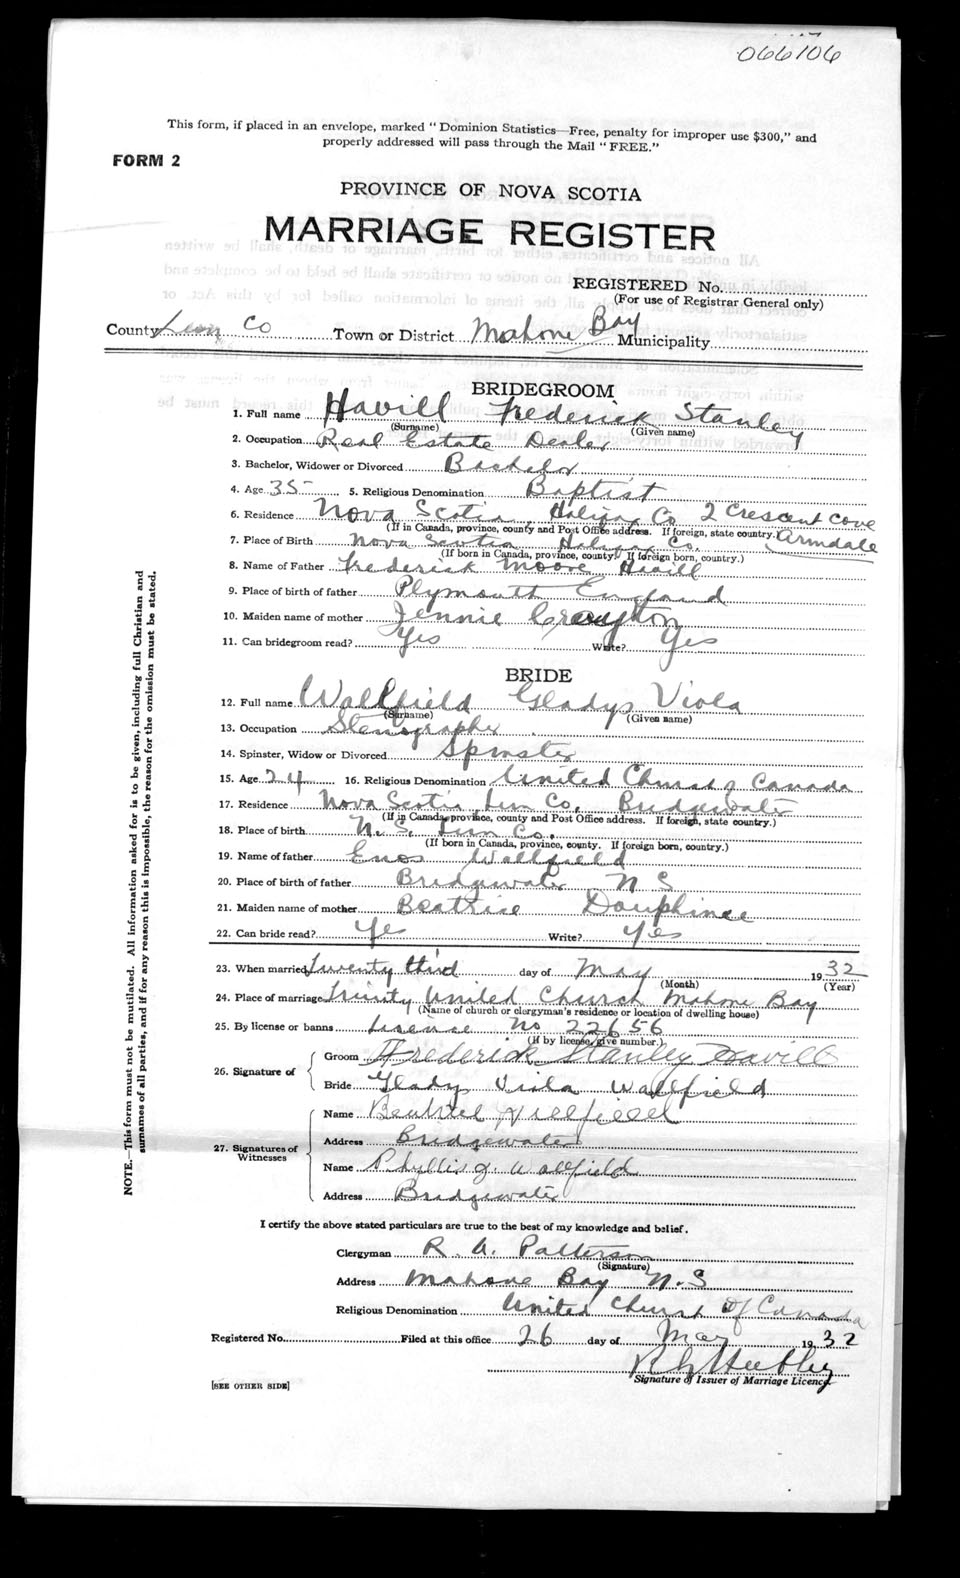 066106
This form, if placed in an envelope, marked "Dominion Statistics—Free, penalty for improper use $300," and
properly addressed will pass through the Mail "FREE."
FORM 2
PROVINCE OF NOVA SCOTIA
MARRIAGE REGISTER
REGISTERED No.
(For use of Registrar General only)
County Lun Co Town or District Mahone Bay Municipality
BRIDEGROOM
1. Full name Havill Frederick Stanley
(Surname) (Given name)
2. Occupation Real Estate Dealer
3. Bachelor, Widower or Divorced Bachelor
4. Age 35 5. Religious Denomination Baptist
6. Residence Nova Scotia Halifax Co 2 Crescent Cove
(If in Canada, province, county and Post Office address. If foreign, state country. Armdale
7. Place of Birth Nova Scotia Halifax Co.
(If born in Canada, province, county. If foreign born, country.)
8. Name of Father Frederick Moore Havill
9. Place of birth of father Plymouth England
10. Maiden name of mother Jennie Creighton
11. Can bridegroom read? Yes Write? Yes
BRIDE
12. Full name Wallfield Gladys Viola
(Surname) (Given name)
13. Occupation Stenographer
14. Spinster, Widow or Divorced Spinster
15. Age 24 16. Religious Denomination United Church of Canada
17. Residence Nova Scotia Lun Co. Bridgewater
(If in Canada, province, county and Post Office address. If foreign, state country.)
18. Place of birth N.S. Lun Co.
(If born in Canada, province, county. If foreign born, country.)
19. Name of father Enos Wallfield
20. Place of birth of father Bridgewater N S
21. Maiden name of mother Beatrice Dauphinee
22. Can bride read? Yes Write? Yes
23. When married Twenty third day of May 1932
(Month) (Year)
24. Place of marriage Trinity United Church Mahone Bay
(Name of church or clergyman's residence or location of dwelling house)
25. By license or banns License No 22656
(If by license, give number.)
26. Signature of Groom Frederick Stanley Havill
Bride Gladys Viola Wallfield
27. Signatures of Witnesses Name Wallfield
Address Bridgewater
Name Phyllis J. Wallfield
Address Bridgewater
I certify the above stated particulars are true to the best of my knowledge and belief.
Clergyman R. A. Patterson
(Signature)
Address Mahone Bay N.S
Religious Denomination United Church Of Canada
Registered No. Filed at this office 26 day of May 1932
Signature of Issuer of Marriage Licence
[SEE OTHER SIDE]
NOTE.—This form must not be mutilated. All information asked for is to be given, including full Christian and
surnames of all parties, and if for any reason this is impossible, the reason for the omission must be stated.